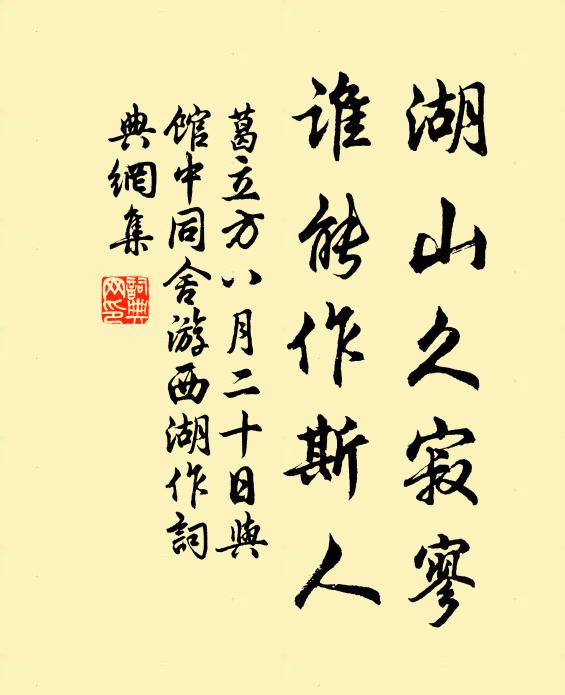 湖山久寂寥
谁能作斯人
葛立方八月二十日與
馆中同舍游西湖作詞
典網集
詞典
网印